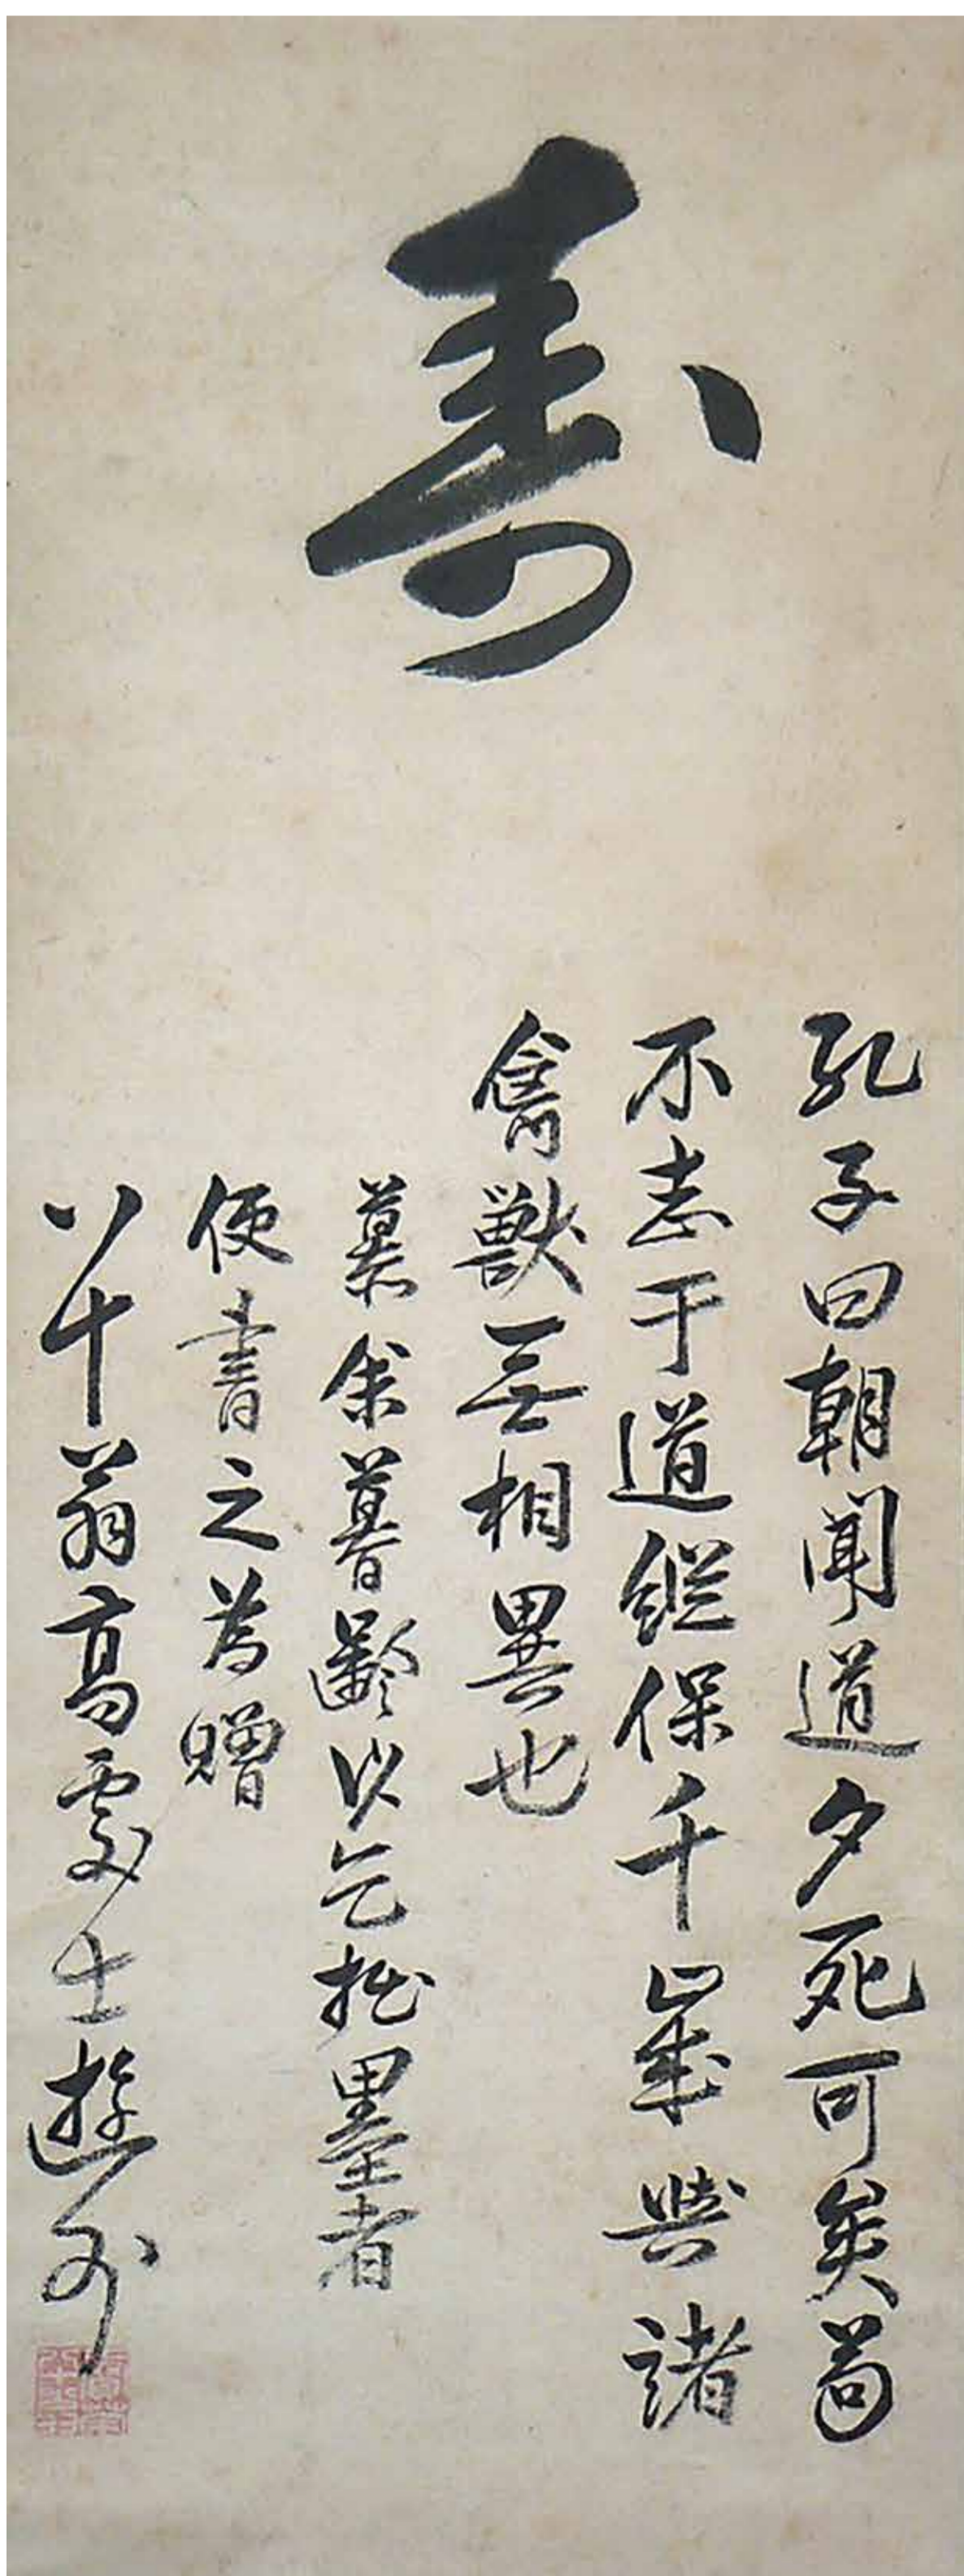 壽
孔子曰朝聞道夕死可矣苟
不志于道縱保千歲與諸
禽獸無相異也
慕余暮齡以乞拙墨者
便書之為贈
八十翁高處士遊外